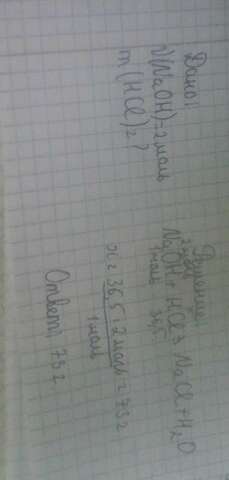 Дано:
V(NaOH)=2 моль
m(HCl)=?
Решение:
2 моль
NaOH + HCl = NaCl + H₂O
1 моль 36,5
x = 36,5 · 2 моль = 73 г
1 моль
Ответ: 73 г